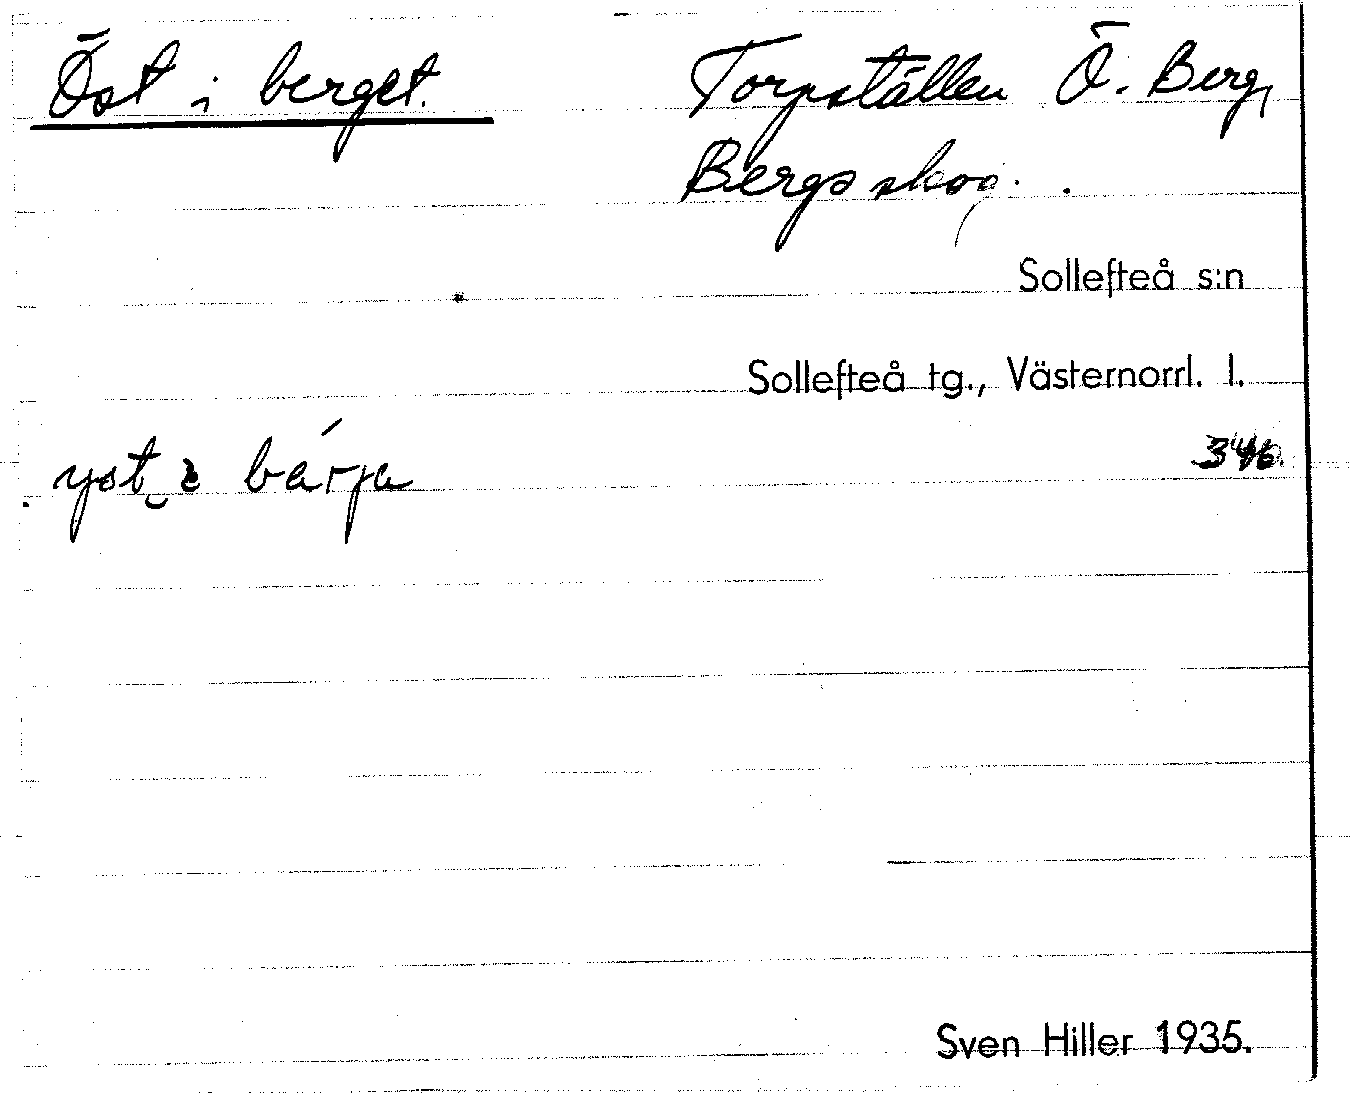 Öst i berget. Torpställen Ö. Berg,
Bergs skog.
Sollefteå s:n
Sollefteå tg., Västernorrl. l.
346.
yst i bárja
Sven Hiller 1935.